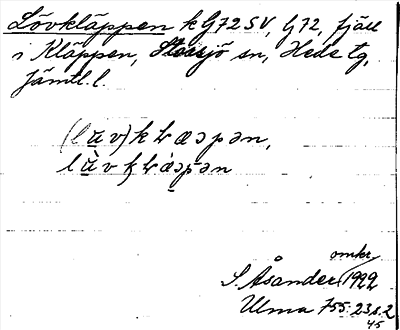 Lövkläppen k G72 SV, G72, fjäll
i Kläppen, Storsjö sn, Hede tg,
Jämtl. l.
(lu̲v)kLæəpən,
lù̲vkLæ̀əpən
omkr
S. Åsander 1922
Ulma 755:23 s. 2
45